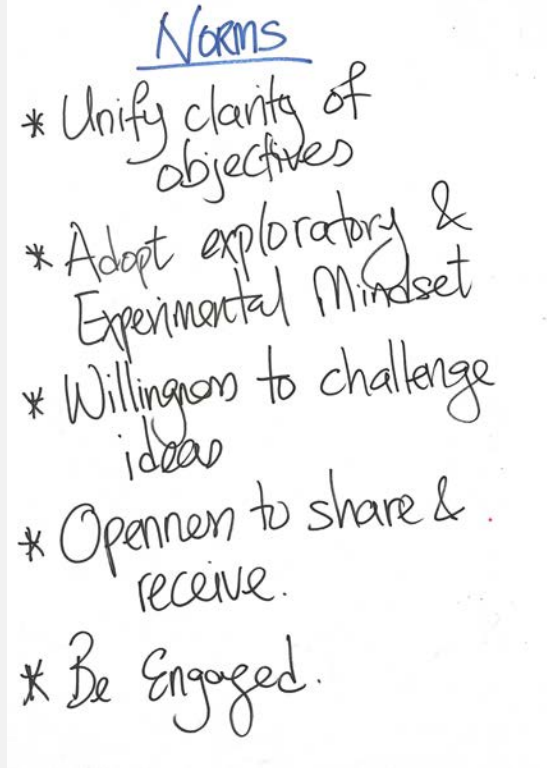 NORMS
* Unify clarity of
objectives
* Adopt exploratory &
Experimental Mindset
* Willingness to challenge
ideas
* Openness to share &
receive.
* Be Engaged.